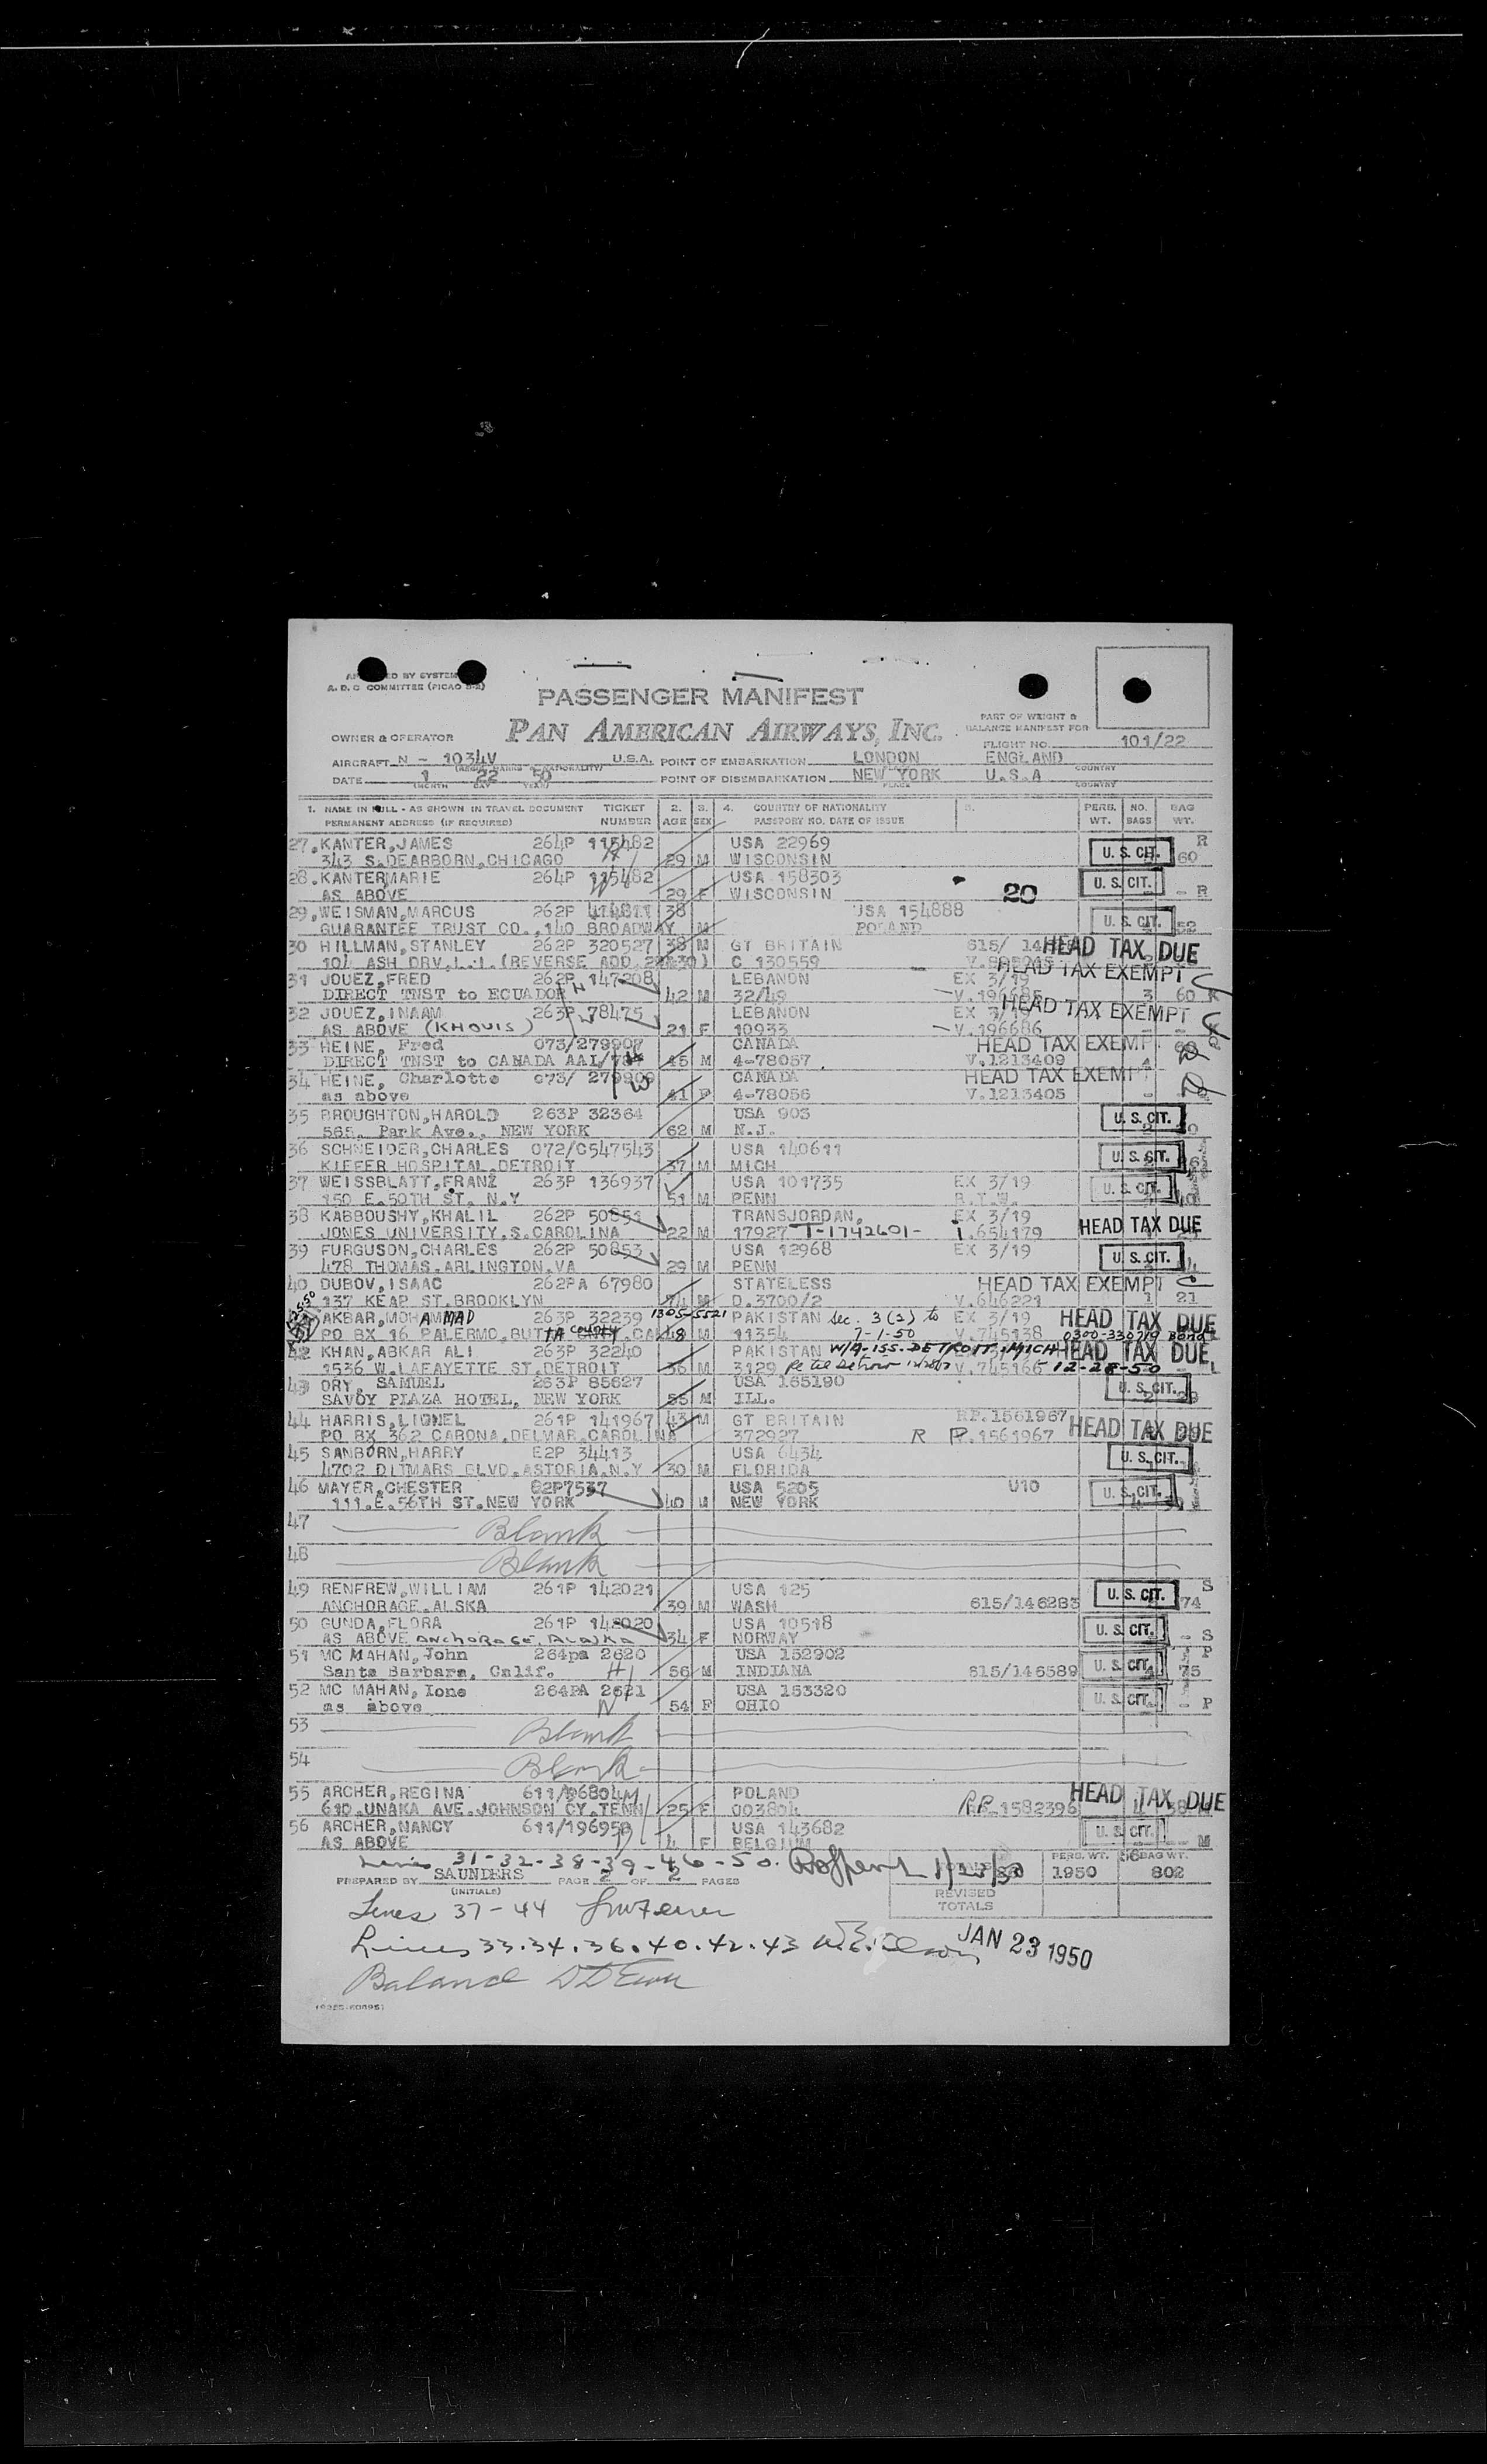 A. D. C COMMITTEE (PICAO
PASSENGER MANIFEST
PAN AMERICAN AIRWAYS, INC.
PART OF WEIGHT &
BALANCE MANIFEST FOR
OWNER & OPERATOR
FLIGHT NO. 101/22
AIRCRAFT N - 1034V U.S.A. POINT OF EMBARKATION LONDON ENGLAND
COUNTRY
DATE 1 22 50 POINT OF DISEMBARKATION NEW YORK U.S.A
(MONTH DAY YEAR) PLACE COUNTRY
1. NAME IN FULL - AS SHOWN IN TRAVEL DOCUMENT TICKET 2. 3. 4. COUNTRY OF NATIONALITY 5. PERS. NO. BAG
PERMANENT ADDRESS (IF REQUIRED) NUMBER AGE SEX PASSPORT NO. DATE OF ISSUE WT. BAGS WT.
27. KANTER, JAMES 264P 115482 USA 22969 U. S. CIT. R
343 S. DEARBORN, CHICAGO 29 M WISCONSIN 60
28. KANTER, MARIE 264P 115482 USA 158303 U. S. CIT.
AS ABOVE 29 F WISCONSIN 20 - R
29. WEISMAN, MARCUS 262P 38 USA 154888 U. S. CIT.
GUARANTEE TRUST CO., 140 BROADWAY M POLAND 52
30 HILLMAN, STANLEY 262P 320527 38 M GT BRITAIN 615/ HEAD TAX DUE
104 ASH DRV, L.I. (REVERSE ADD. C 130559
31 JOUEZ, FRED 262P 147208 LEBANON EX 3/19 HEAD TAX EXEMPT
DIRECT TNST to ECUADOR 42 M 32/49 V.196685 3 60 K
32 JOUEZ, INAAM 263P 78475 LEBANON EX 3/19 HEAD TAX EXEMPT
AS ABOVE (KHOURS) 21 F 10933 V.196686
33 HEINE, Fred 073/279907 CANADA HEAD TAX EXEMPT
DIRECT TNST to CANADA 45 M 4-78057 V.1213409
34 HEINE, Charlotte 073/ 279909 CANADA HEAD TAX EXEMPT
as above 41 F 4-78056 V.1213405
35 BROUGHTON, HAROLD 263P 32364 USA 903 U. S. CIT.
565, Park Ave., NEW YORK 62 M N.J.
36 SCHNEIDER, CHARLES 072/C547543 USA 140611 U. S. CIT.
KIEFER HOSPITAL, DETROIT 37 M MICH
37 WEISSBLATT, FRANZ 263P 136937 USA 101735 EX 3/19 U. S. CIT.
150 E. 50TH ST. N.Y 51 M PENN R.T.W.
38 KABBOUSHY, KHALIL 262P 50851 TRANSJORDAN, EX 3/19 HEAD TAX DUE
JONES UNIVERSITY, S. CAROLINA 22 M 17927 T-1742601- 654179
39 FURGUSON, CHARLES 262P 50853 USA 12968 EX 3/19 U. S. CIT.
478 THOMAS, ARLINGTON, VA 29 M PENN
40 DUBOV, ISAAC 262PA 67980 STATELESS HEAD TAX EXEMPT
137 KEAP ST. BROOKLYN 74 M D.3700/2 V.646221 1 21
AKBAR, MOHAMMAD 263P 32239 1305-5521 PAKISTAN Sec. 3 (2) to EX 3/19 HEAD TAX DUE
PO BX 16 PALERMO, BUTTA COUNTY, CAL 48 M 11354 7-1-50 V.745138 0300-330719 Bond
42 KHAN, ABKAR ALI 263P 32240 PAKISTAN W/A-ISS. DETROIT, MICH HEAD TAX DUE
1536 W. LAFAYETTE ST. DETROIT 36 M 3129 V.745166 12-28-50 - L
43 DRY, SAMUEL 263P 85627 USA 165190 U. S. CIT.
SAVOY PLAZA HOTEL, NEW YORK 55 M ILL.
44 HARRIS, LIONEL 261P 141967 43 M GT BRITAIN RP.1561967 HEAD TAX DUE
PO BX 362 CARONA, DELMAR, CAROLINA 372927 R P.1561967
45 SANBORN, HARRY E2P 34413 USA 6434 U. S. CIT.
4702 DITMARS BLVD, ASTORIA, N.Y 30 M FLORIDA
46 MAYER, CHESTER 62P7537 USA 5205 U10 U. S. CIT.
111. E. 56TH ST. NEW YORK 40 M NEW YORK
47 Blank
48 Blank
49 RENFREW, WILLIAM 261P 142021 USA 125 U. S. CIT. S
ANCHORAGE, ALSKA 39 M WASH 615/146283 74
50 GUNDA, FLORA 261P 142020 USA 10518 U. S. CIT.
AS ABOVE ANCHORAGE, ALASKA 34 F NORWAY - S
51 MC MAHAN, John 264pa 2620 USA 152902 U. S. CIT. P
Santa Barbara, Calif. 56 M INDIANA 615/146589 75
52 MC MAHAN, Ione 264PA 2621 USA 153320 U. S. CIT.
as above 54 F OHIO - P
53 Blank
54 Blank
55 ARCHER, REGINA 611/ POLAND HEAD TAX DUE
610, UNAKA AVE. JOHNSON CY, TENN 25 F 003804 RP 1582396
56 ARCHER, NANCY 611/196958 USA 143682 U. S. CIT.
AS ABOVE 4 F BELGIUM M
Lines 31-32-38-39-46-50. 1/23/50 PERS. WT. BAG WT.
PREPARED BY SAUNDERS PAGE 2 OF 2 PAGES 1950 802
(INITIALS) REVISED
TOTALS
Lines 37-44
Lines 33.34.36.40.42.43 JAN 23 1950
Balance